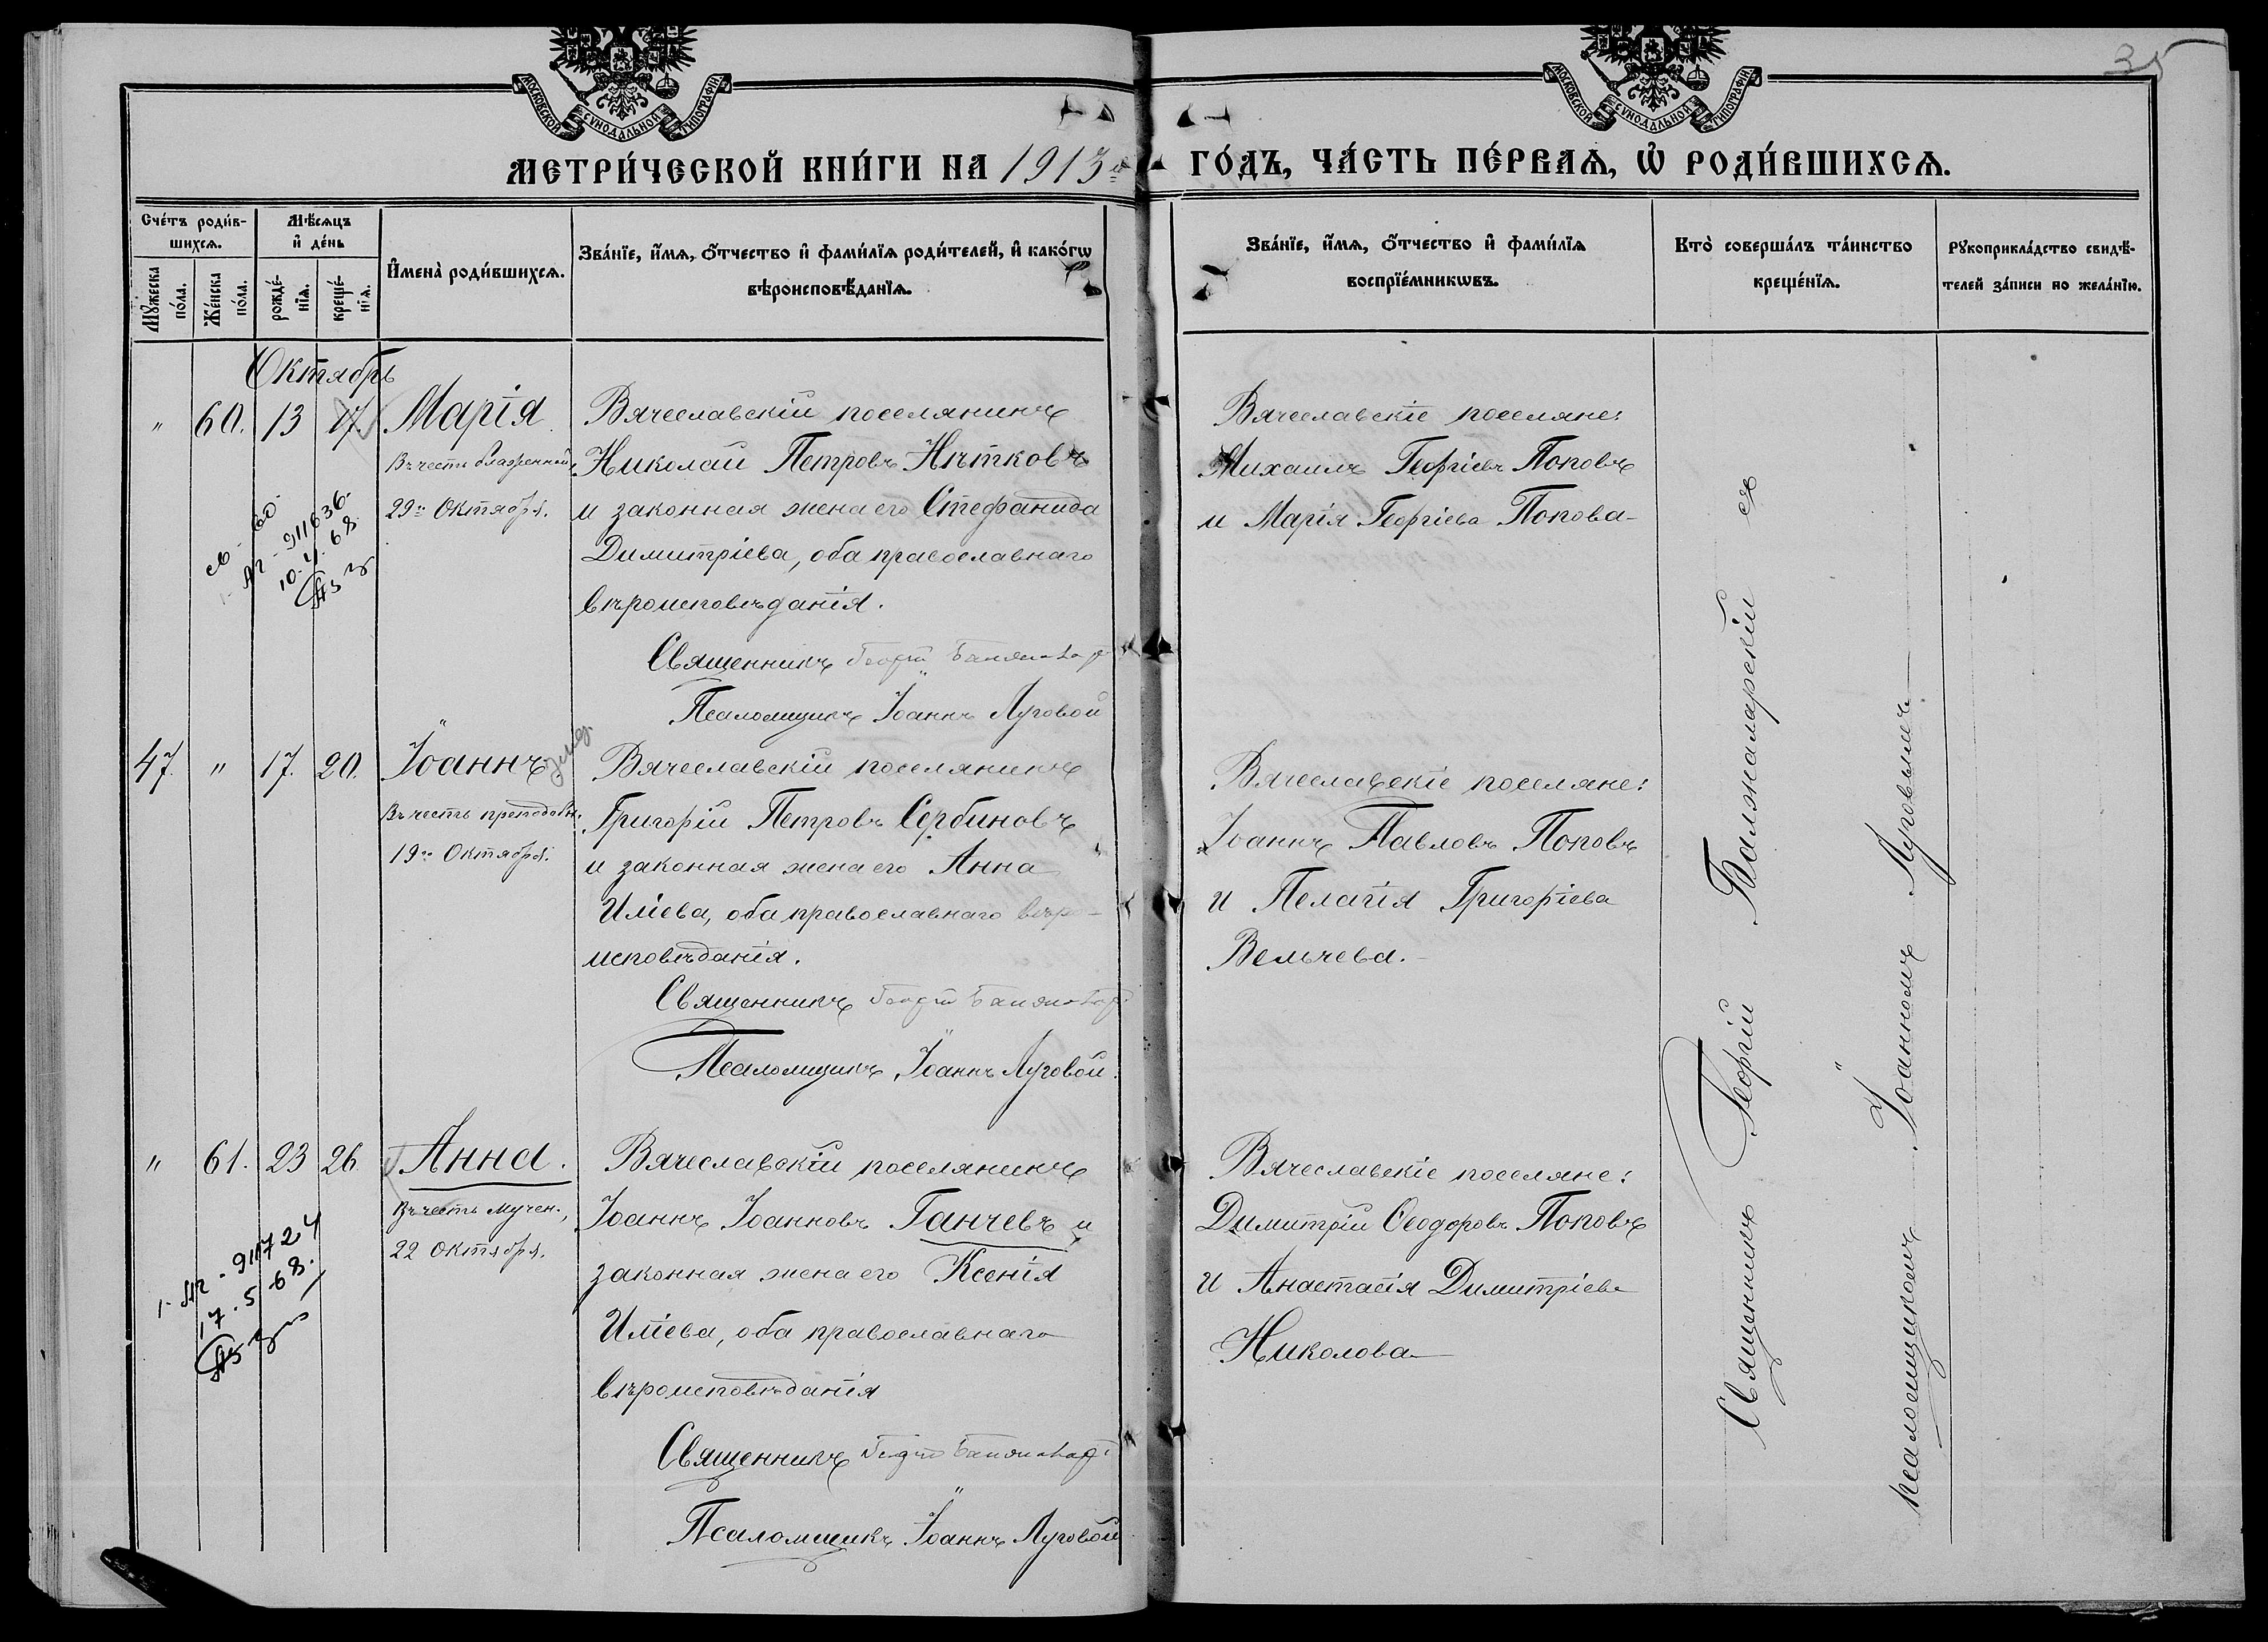 35
МОСКОВСКОЙ СѴНОДАЛЬНОЙ ТИПОГРАФІИ
МОСКОВСКОЙ СѴНОДАЛЬНОЙ ТИПОГРАФІИ
МЕТРИ́ЧЕСКОЙ КНИ́ГИ НА 1913 ГО́ДЪ, ЧА́СТЬ ПЕ́РВАѦ, Ѡ҆ РОДИ́ВШИХСѦ.
Сче́тъ роди́в-
шихсѧ.
Мꙋ́жеска по́ла.
Же́нска по́ла.
Мѣ́сѧцъ
и҆ де́нь
рожде́-
нїѧ.
креще́-
нїѧ.
И҆мена̀ роди́вшихсѧ.
Зва́нїе, и҆́мѧ, ѻ҆́тчество и҆ фами́лїѧ роди́телей, и҆ како́гѡ
вѣроисповѣ́данїѧ.
Зва́нїе, и҆́мѧ, ѻ҆́тчество и҆ фами́лїѧ
воспрїе́мникѡвъ.
Кто̀ соверша́лъ та́инство
креще́нїѧ.
Рꙋкоприкла́дство свидѣ́-
телей за́писи по жела́нїю.
Октябрь
" 60. 13 17. Марія
Въ честь блаженной
29го Октября.
911636
10.4.68
Вячеславскій поселянинъ
Николай Петровъ Нѣтковъ
и законная жена его Стефанида
Димитріева, оба православнаго
вѣроисповѣданія.
Священникъ Георгій
Псаломщикъ Іоаннъ Луговой
Вячеславскіе поселяне:
Михаилъ Георгіевъ Поповъ
и Марія Георгіева Попова
47. " 17. 20. Іоаннъ
Въ честь преподобн.
19го Октября.
Вячеславскій поселянинъ
Григорій Петровъ Сербиновъ
и законная жена его Анна
Иліева, оба православнаго вѣро-
исповѣданія.
Священникъ Георгій
Псаломщикъ Іоаннъ Луговой
Вячеславскіе поселяне:
Іоаннъ Павловъ Поповъ
и Пелагія Григоріева
Вельчева.
" 61. 23 26. Анна.
Въ честь мучен.,
22 Октября.
911724
17.5.68.
Вячеславскій поселянинъ
Іоаннъ Іоанновъ Ганчевъ и
законная жена его Ксенія
Иліева, оба православнаго
вѣроисповѣданія
Священникъ Георгій
Псаломщикъ Іоаннъ Луговой
Вячеславскіе поселяне:
Димитрій Ѳеодоровъ Поповъ
и Анастасія Димитріева
Николова
Священникъ Георгій Балжаларскій съ
псаломщикомъ Іоанномъ Луговымъ